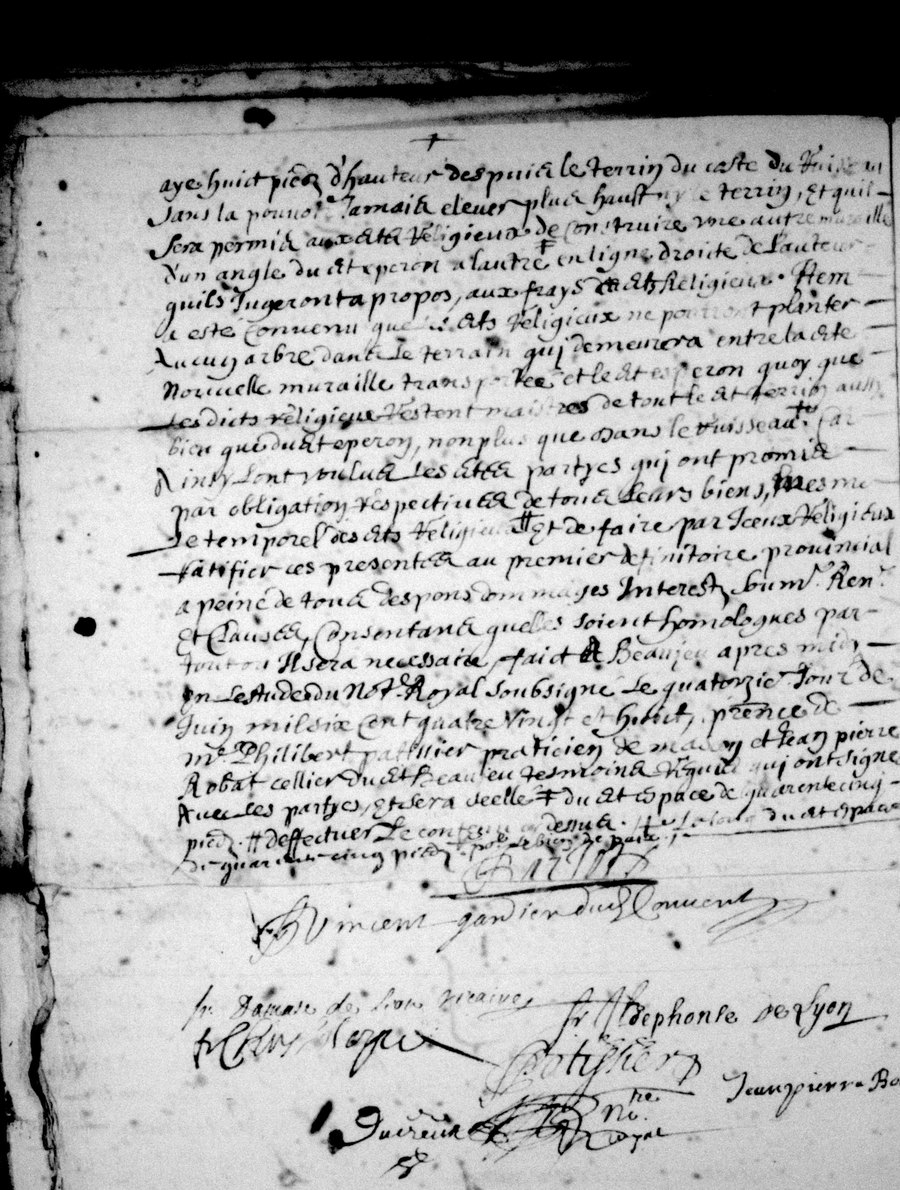 aye huict pieds d'hauteur despuis le terrin du coste du Ruisseau
sans la pouvoir Jamais elever plus hault ny le terrin, Et quil
sera permis aux dits Religieux de construire une autre muraille
d'un angle dudt eperon a lautre en ligne droite de l'auteur
quils Jugeront a propos, aux frays desdts Religieux. Item
a este convenu que lesdts Religieux ne pourront planter
Aucun arbre dans le terrain qui demeurera entre ladte
Nouvelle muraille transportée et ledt esperon quoy que
lesdicts religieux restent maistres de tout ledt terrin aussy
bien que dudt eperon, non plus que dans le ruisseau. Car
Ainsy l'ont voulus lesdtes partyes qui ont promis
par obligation respectives de tous leurs biens, mesme
le temporel desdts Religieux # Et de faire par Iceux Religieux
ratifier ces presentes au premier definitoire provincial
a peine de tous despens dommages Interests soumn. Renn.
Et Clauses, Consentans quelles soient homologues par
tout ou Il sera necessaire, faict A Beaujeu apres midy
en lestude du Notre Royal soubsigné Le quatorzie Jour de
Juin mil six cent quatre vingt et huict, prence de
me. Philibert patissier praticien de et Jean pierre
Robat cellier dudt Beaujeu tesmoins Requis qui ont signe
Avec les partyes, Et sera seelle ǂ dudt espace de quarente cinq
pieds # d'effectuer Le contenu cy dessus . le long dudt espace
de quarante cinq pieds
Vincent gardien dudt Convent
fr. Damase de Lion vicaire
fr Ildephonse de Lyon
Patissier
Jean pierre Ro
Ducreux Nre
Royal